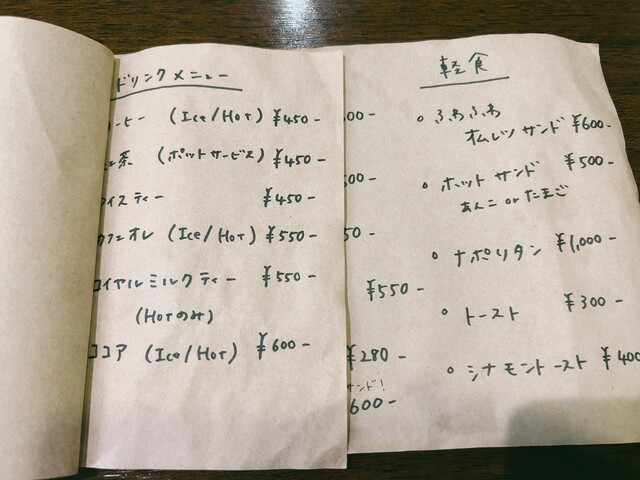 ドリンクメニュー
ーヒー (Ice/Hot) ¥450-
茶 (ポットサービス) ¥450-
イスティー ¥450-
カフェオレ (Ice/Hot) ¥550-
ロイヤルミルクティー ¥550-
(Hotのみ)
ココア (Ice/Hot) ¥600-
00-
500-
50-
¥550-
¥280-
ンド!
600-
軽食
・ふわふわ
オムレツ サンド ¥600-
・ホット サンド ¥500-
あんこ or たまご
・ナポリタン ¥1,000-
・トースト ¥300-
・シナモントースト ¥400